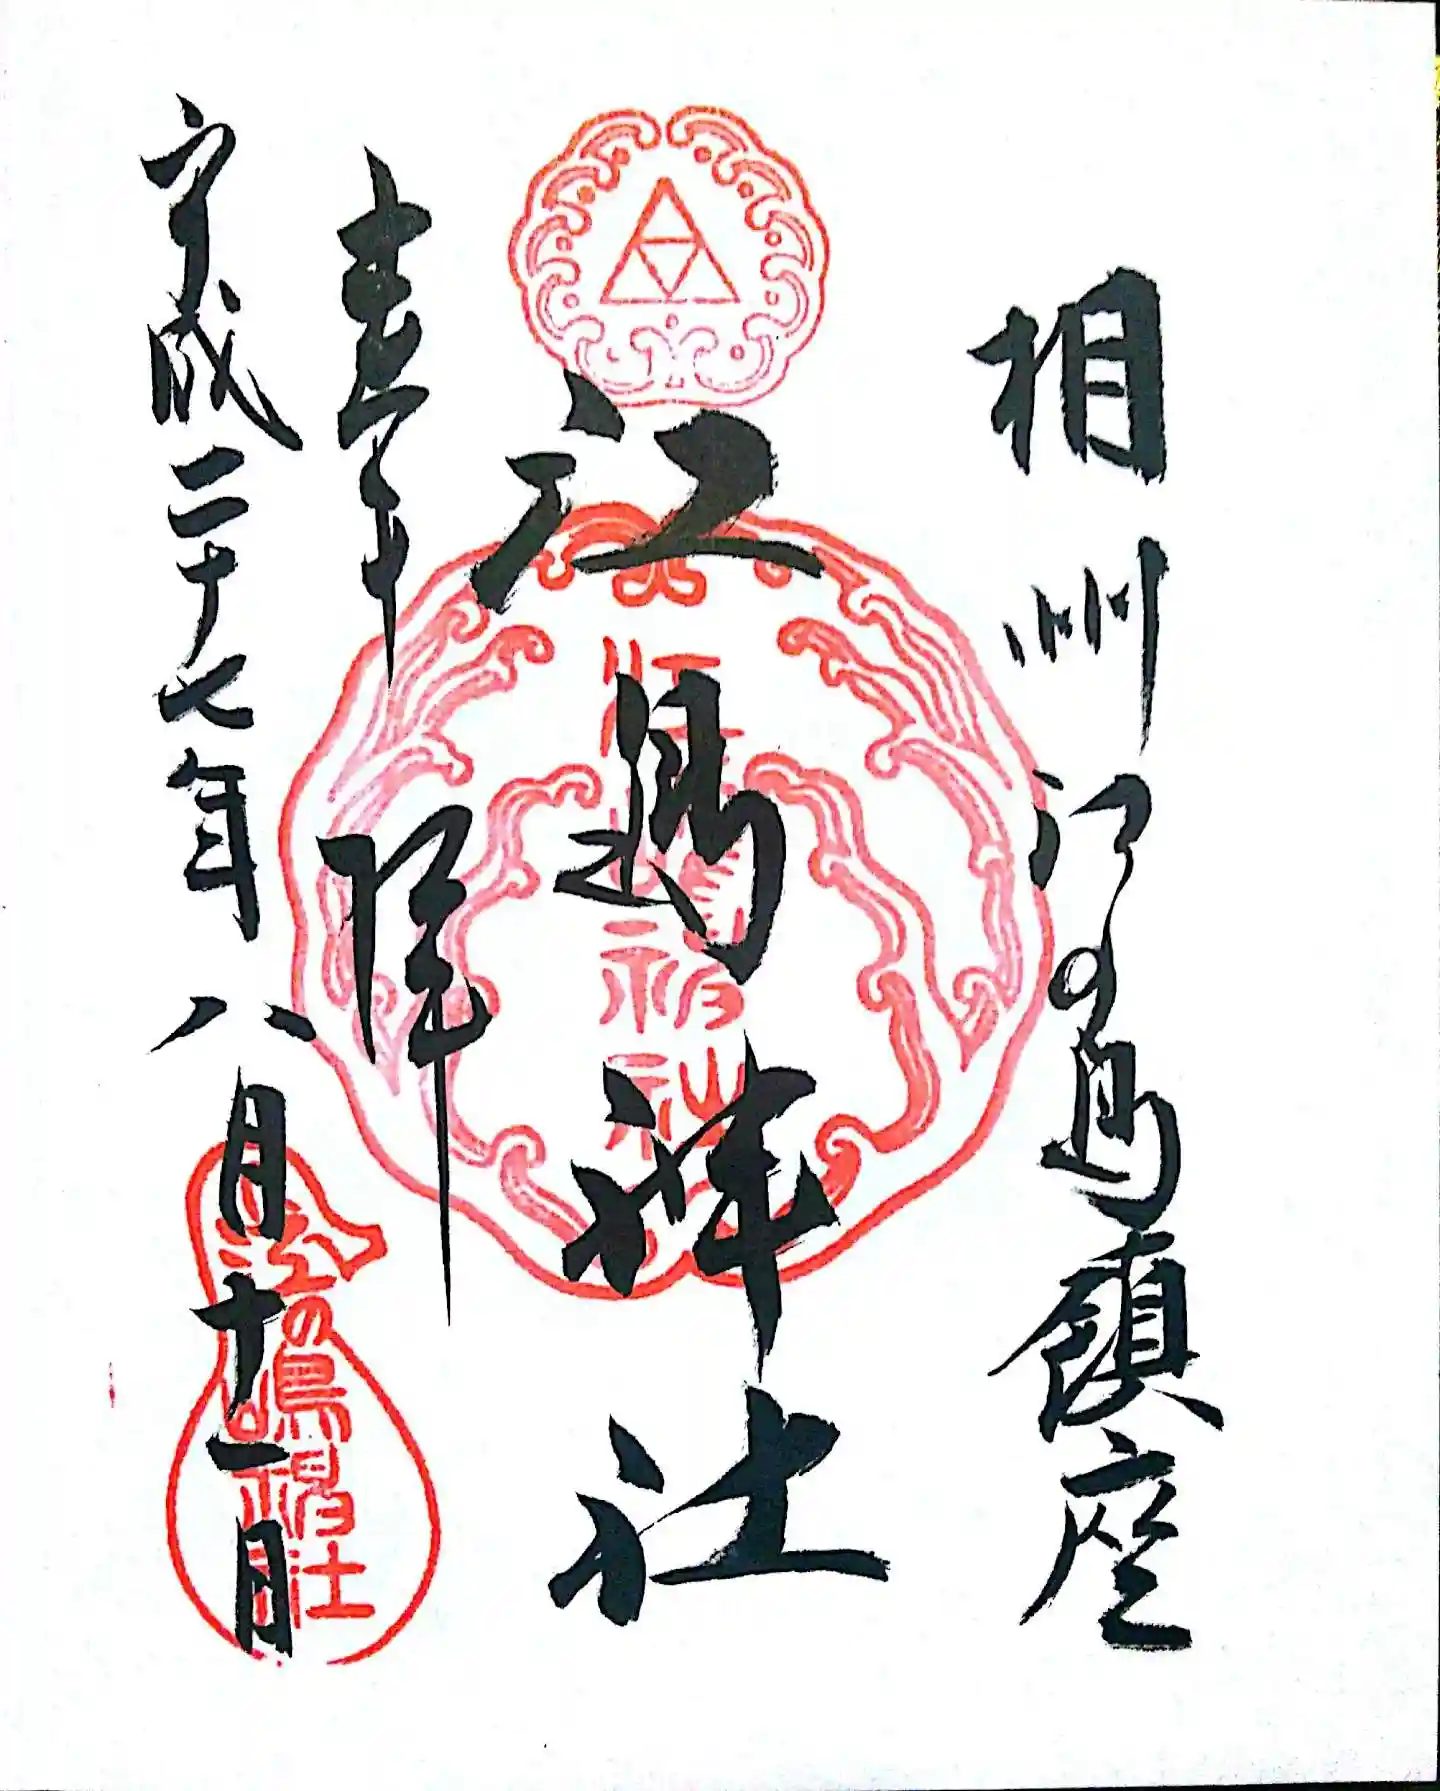 相州江の島鎮座
江島神社
奉拝
平成二十七年八月十一日
江島神社
江の嶋神社